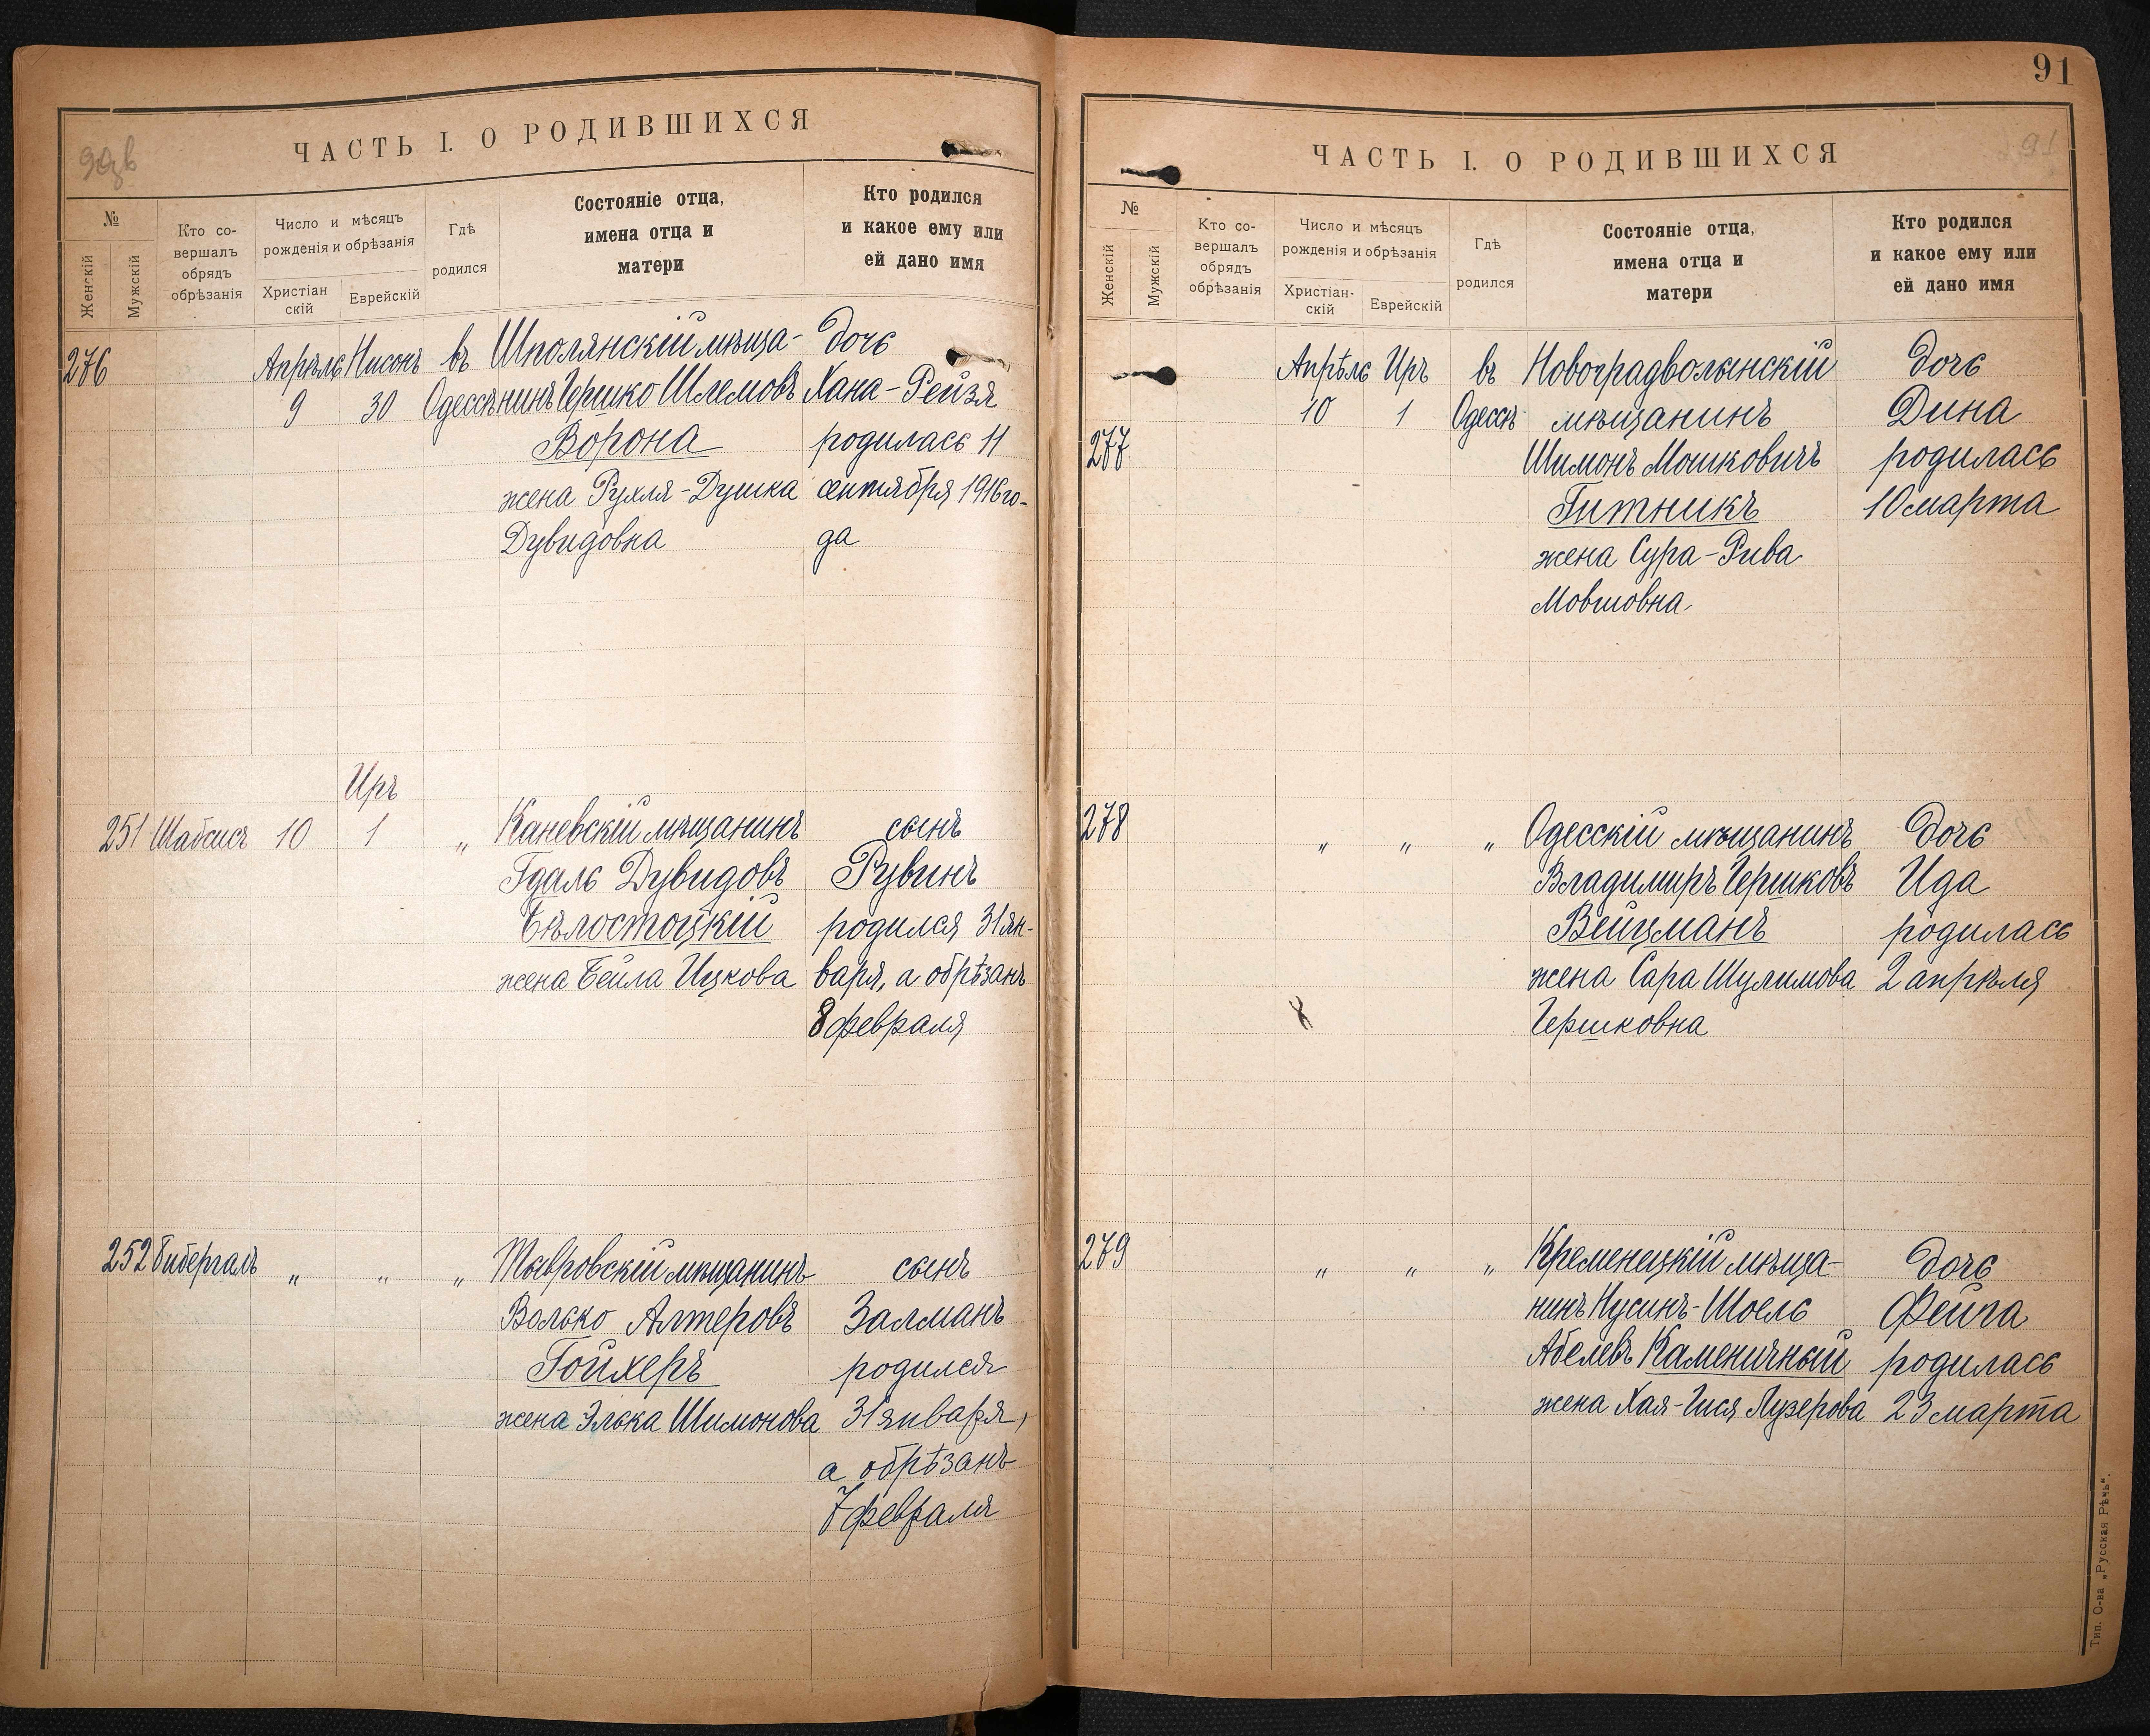 90об
ЧАСТЬ I. О РОДИВШИХСЯ
№
Женскій
Мужскій
Кто со-
вершалъ
обрядъ
обрѣзанія
Число и мѣсяцъ
рожденія и обрѣзанія
Христіан
скій
Еврейскій
Гдѣ
родился
Состояніе отца,
имена отца и
матери
Кто родился
и какое ему или
ей дано имя
276
Апрѣль
9
Нисонъ
30
въ
Одессѣ
Шполянскій мѣща-
нинъ Гершко Шлемовъ
Ворона
жена Рухля-Душка
Дувидовна
дочь
Хана-Рейзя
родилась 11
сентября 1916 го-
да
251
Шабсисъ
10
Иръ
1
„
Каневскій мѣщанинъ
Гдаль Дувидовъ
Бѣлостоцкій
жена Бейла Ицкова
сынъ
Рувинъ
родился 31 ян-
варя, а обрѣзанъ
8 февраля
252
Гибергалъ
„
„
„
Тывровскій мѣщанинъ
Волько Алтеровъ
Гойхеръ
жена Элька Шимонова
сынъ
Залманъ
родился
31 января,
а обрѣзанъ
7 февраля
91
91
ЧАСТЬ I. О РОДИВШИХСЯ
№
Женскій
Мужскій
Кто со-
вершалъ
обрядъ
обрѣзанія
Число и мѣсяцъ
рожденія и обрѣзанія
Христіан-
скій
Еврейскій
Гдѣ
родился
Состояніе отца,
имена отца и
матери
Кто родился
и какое ему или
ей дано имя
277
Апрѣль
10
Иръ
1
въ
Одессѣ
Новоградволынскій
мѣщанинъ
Шимонъ Мошковичъ
Гитникъ
жена Сура-Рива
Мовшовна
дочь
Дина
родилась
10 марта
278
„
„
„
Одесскій мѣщанинъ
Владимиръ Гершковъ
Вейцманъ
жена Сара Шулимова
Гершковна
дочь
Ида
родилась
2 апрѣля
279
„
„
„
Кременецкій мѣща-
нинъ Нусинъ-Шоель
Абелевъ Каменичный
жена Хая-Гися Лузерова
дочь
Фейга
родилась
23 марта
Тип. О-ва „Русская Рѣчь“.